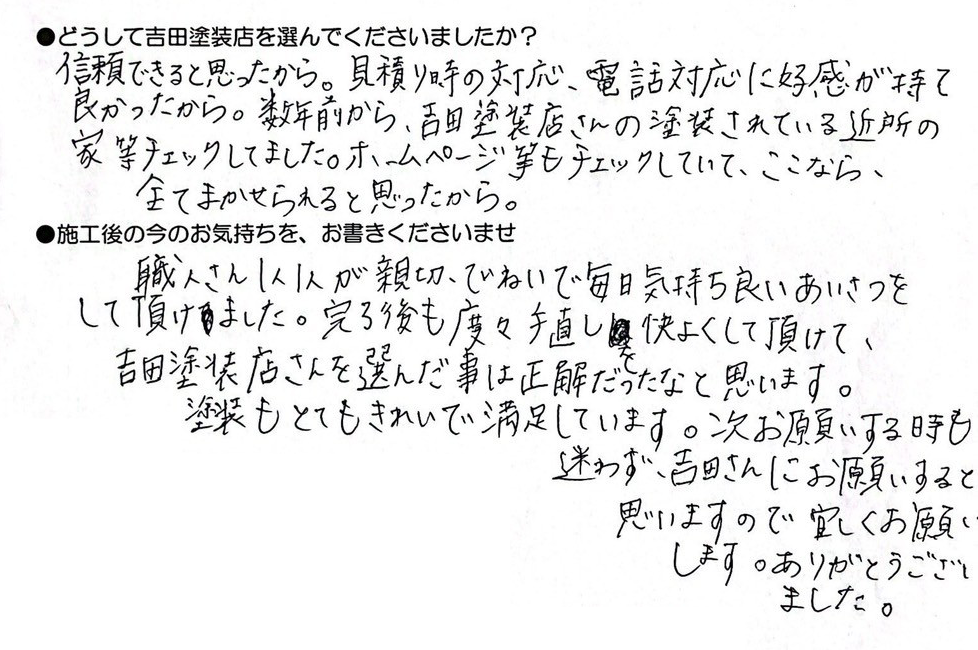 ●どうして吉田塗装店を選んでくださいましたか?
信頼できると思ったから。見積り時の対応、電話対応に好感が持て
良かったから。数年前から、吉田塗装店さんの塗装されている近所の
家等チェックしてました。ホームページ等もチェックしていて、ここなら、
全てまかせられると思ったから。
●施工後の今のお気持ちを、お書きくださいませ
職人さん1人1人が親切、でねいで毎日気持ち良いあいさつを
して頂けました。完了後も度々手直しを快よくして頂けて、
吉田塗装店さんを選んだ事は正解だったなと思います。
塗装もとてもきれいで満足しています。次お願いする時も
迷わず、吉田さんにお願いすると
思いますので宜しくお願い
します。ありがとうござい
ました。